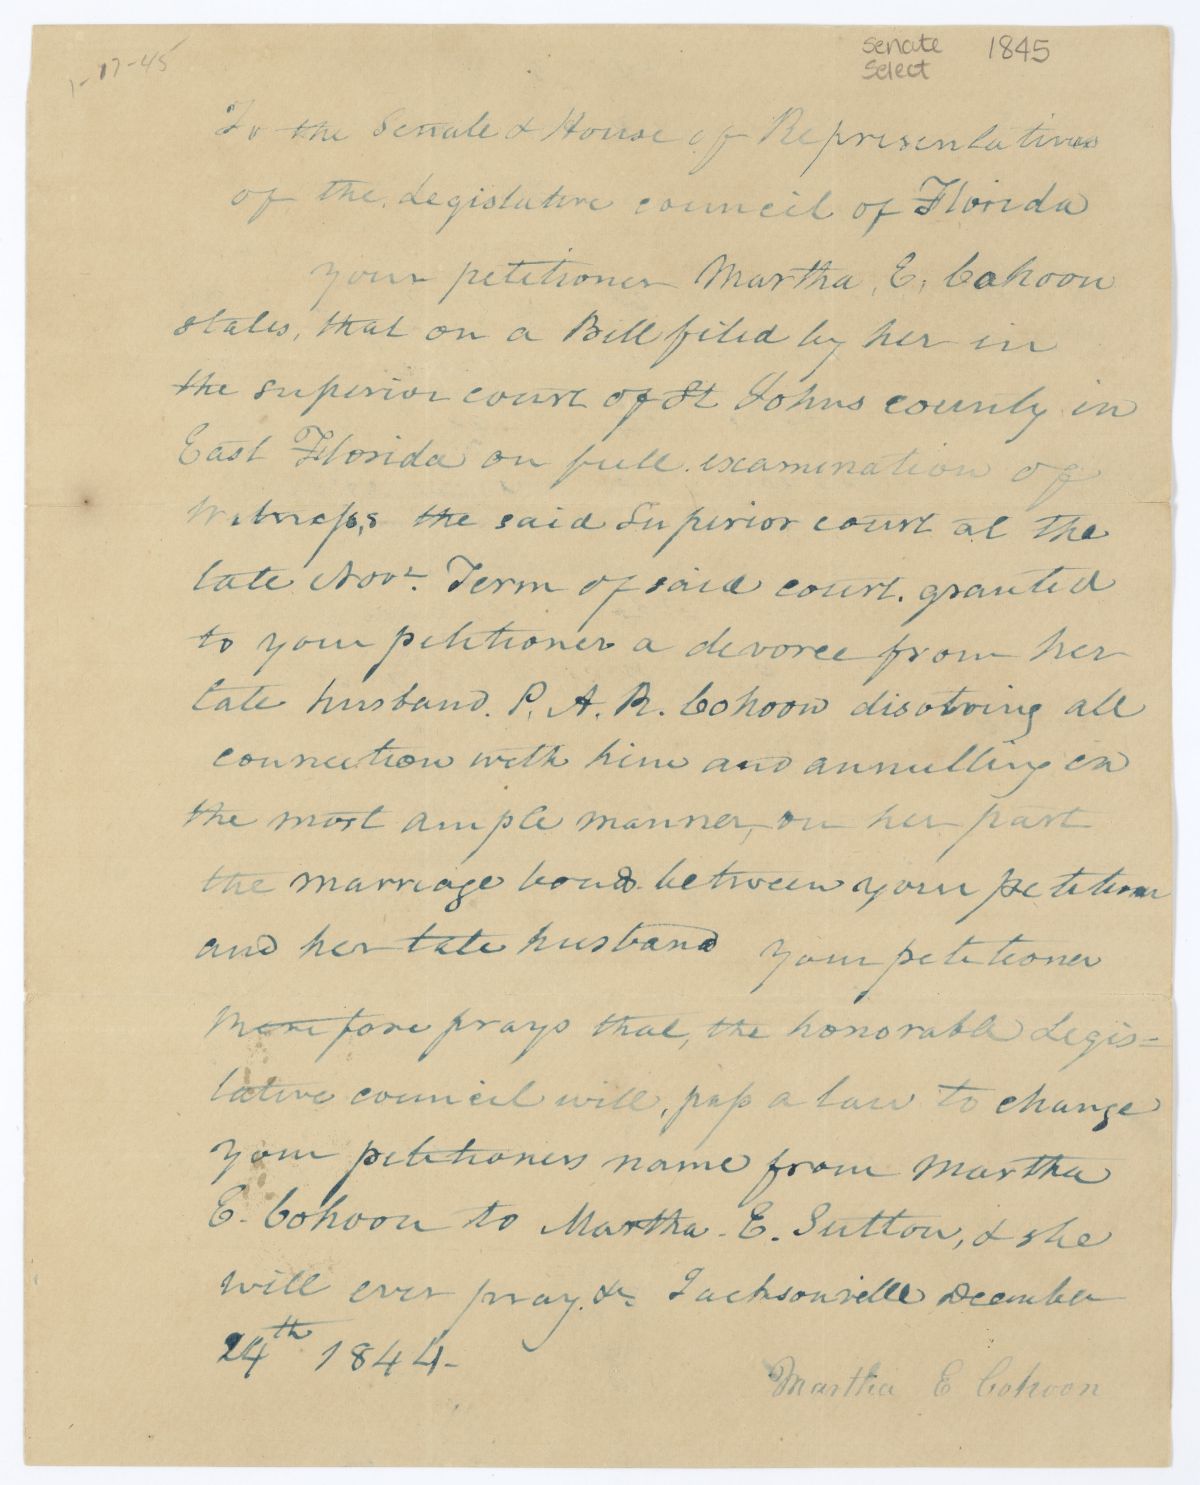 1-17-45
Senate 1845
Select
To the Senate & House of Representatives
of the Legislative council of Florida
your petitioner Martha, E, Cohoon
states, that on a Bill filed by her in
the superior court of St Johns county in
East Florida on full examination of
Witnesses the said Superior court at the
late Novr. Term of said court. granted
to your petitioner a devorce from her
late husband. P. A. R. Cohoon disolving all
connection with him and annulling in
the most ample manner, on her part
the marriage bond between your petitioner
and her late husband your petitioner
therefore prays that, the honorable Legis=
lative council will, pass a law to change
your petitioners name from Martha
E. Cohoon to Martha. E. Sutton, & she
will ever pray. &c Jacksonville December
24th 1844-
Martha E Cohoon